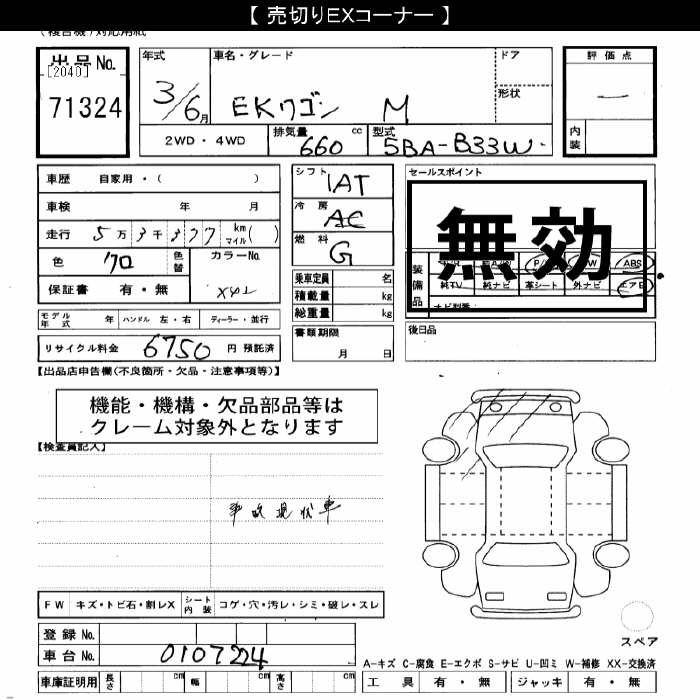 【 売切りEXコーナー 】
出品No.
[2040]
71324
年式
3/6月
車名・グレード
EKワゴン M
ドア
形状
評価点
内装
2WD・4WD
排気量
660 cc
型式
5BA-B33W
車歴 自家用・( )
車検 年 月
走行 5万3千377 km マイル( )
色 クロ
色替
カラーNo.
X42
保証書 有・無
モデル年式 年 ハンドル 左・右 ディーラー・並行
リサイクル料金 6750 円 預託済
シフト
IAT
冷房
AC
燃料
G
乗車定員 名
積載量 kg
総重量 kg
書類期限
月 日
セールスポイント
無効
装備品
ABS
純TV 純ナビ 革シート 外ナビ エアB
後日品
【出品店申告欄(不良箇所・欠品・注意事項等)】
機能・機構・欠品部品等は
クレーム対象外となります
【検査員記入】
事故現状車
FW キズ・トビ石・割レX シート内装 コゲ・穴・汚レ・シミ・破レ・スレ
登録No.
車台No. 0107224
車庫証明用 長さ cm 幅 cm 高さ cm
スペア
A-キズ C-腐食 E-エクボ S-サビ U-凹ミ W-補修 XX-交換済
工具 有・無 ジャッキ 有・無